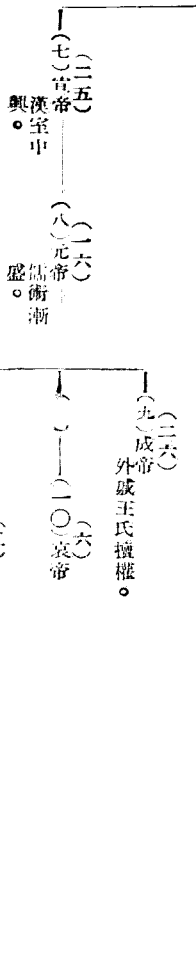 (二五)
(七)宣帝
漢室中
興。
(一六)
(八)元帝
儒術漸
盛。
(二六)
(九)成帝
外戚王氏擅權。
( )
(六)
(一〇)哀帝